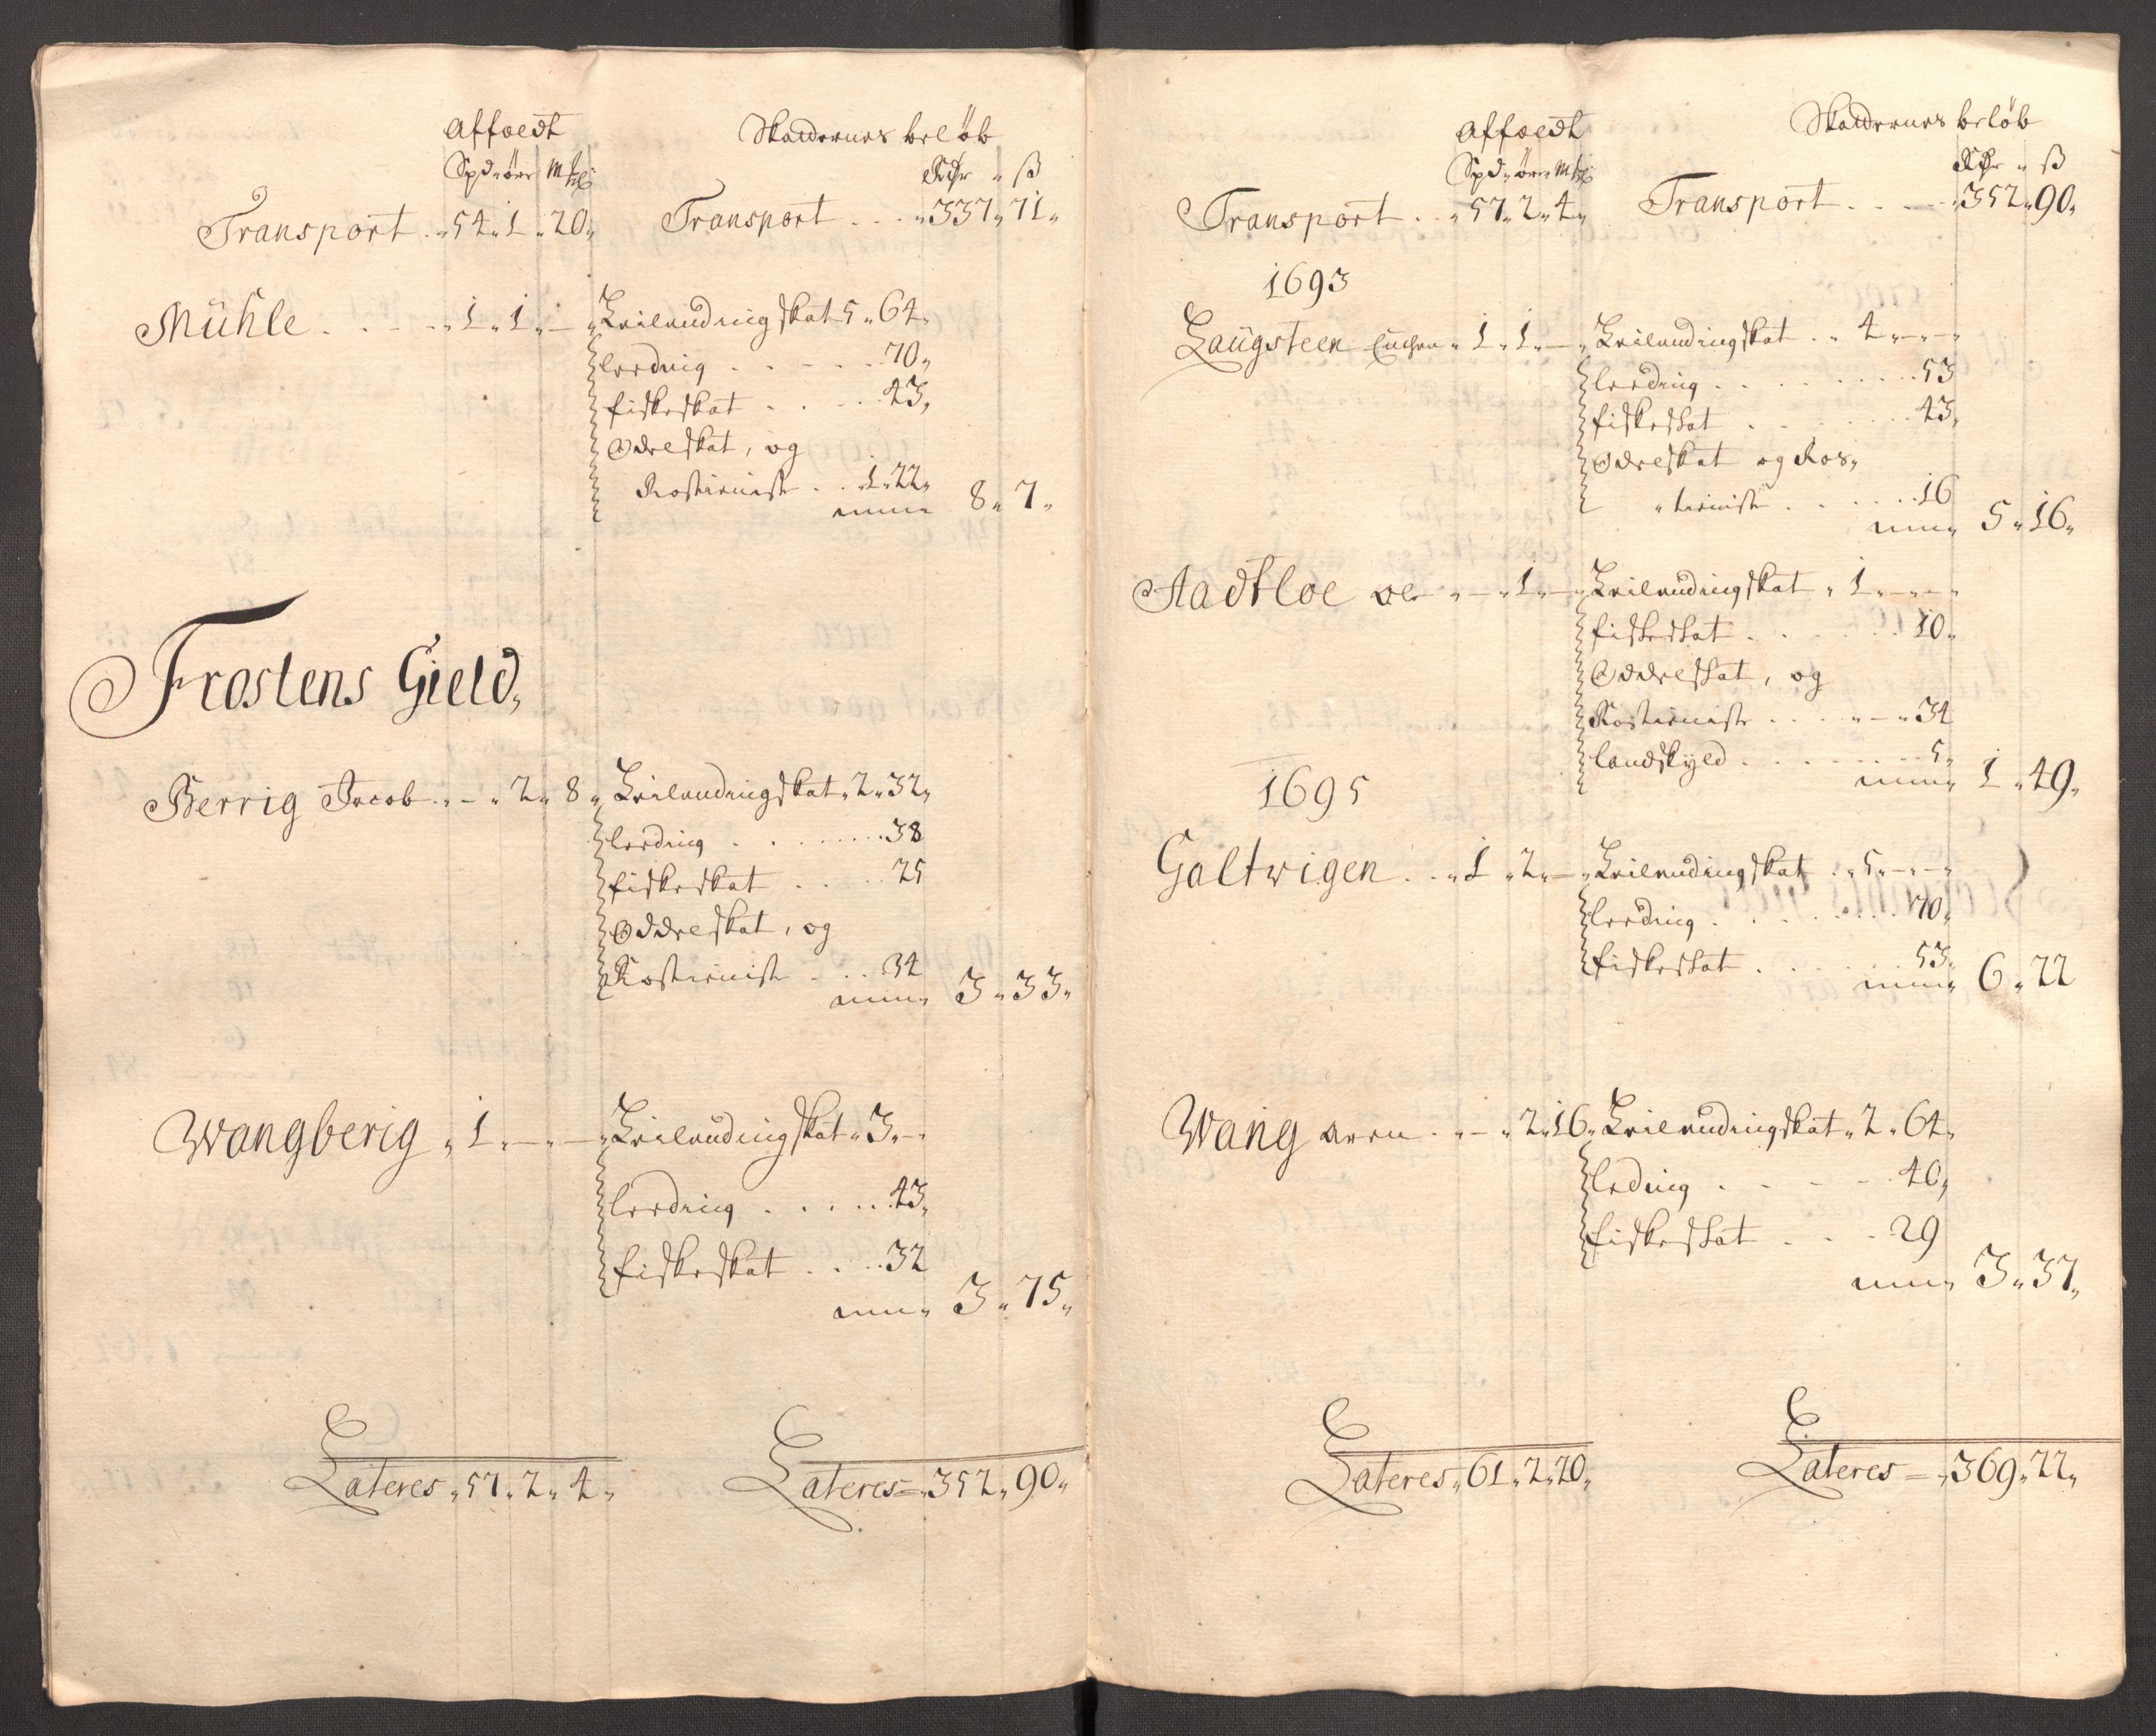 Affoedt Skaudernes belöb
Spd„ öre Mk Rdr „ ß
Transport . „ 54 „ 1 „ 20 „ Transport . . . „ 337 „ 71 „
Mühle . . . . „ 1 „ 1 „ — „ Leilendingskat 5 „ 64 „
Leeding . . . . . 70 „
fiskeskat . . . . 43 „
Odreskat, og
Rostieniste . . 1 „ 22 „
8 „ 7 „
Frostens Gield,
Berrig Jacob . „ – „ 2 „ 8 „ Leilendingskat „ 2 „ 32 „
leeding . . . . . . 38
fiskeskat . . . . 25
Oddreskat, og
Rostieniste . . . 34
3 „ 33 „
Wangberig „ 1 „ — „ — „ Leilendingskat „ 3 „ –
leeding . . . . . 43 „
fiskeskat . . . . 32
3 „ 75 „
Lateres „ 57 „ 2 „ 4 „ Lateres = „ 352 „ 90 „
Affoedt Skaudernes belöb
Spd„ öre„ Mk Rdr „ ß
Transport . . „ 57 „ 2 „ 4 „ Transport . . . . „ 352 „ 90 „
1693
Laugsteen „ 1 „ 1 „ — „ Leilendingskat . . „ 4 „ – „ – „
leeding . . . . . . . . 53
fiskeskat . . . . . . 43 „
Odreskat og Ros„
„ tieniste . . . . . 16
5 „ 16 „
Aadtloe „ – „ 1 „ — „ Leilendingskat „ 1 „ – „ – „
fiskeskat . . . . . . 10 „
Oddreskat, og
Rostieniste . . . . „ – „ 34
landskyld . . . . . . . 5 „
1 „ 49 „
1695
Galtwigen . . „ 1 „ 2 „ — „ Leilendingskat . „ 5 „ – „ – „
leeding . . . . . . . 70 „
fiskeskat . . . . . . 53 „
6 „ 22
Wang „ – „ 2 „ 16 „ Leilendingskat „ 2 „ 64 „
leding . . . . 40 „
fiskeskat . . . 29
3 „ 37 „
Lateres „ 61 „ 2 „ 20 „ Lateres = „ 369 „ 22 „